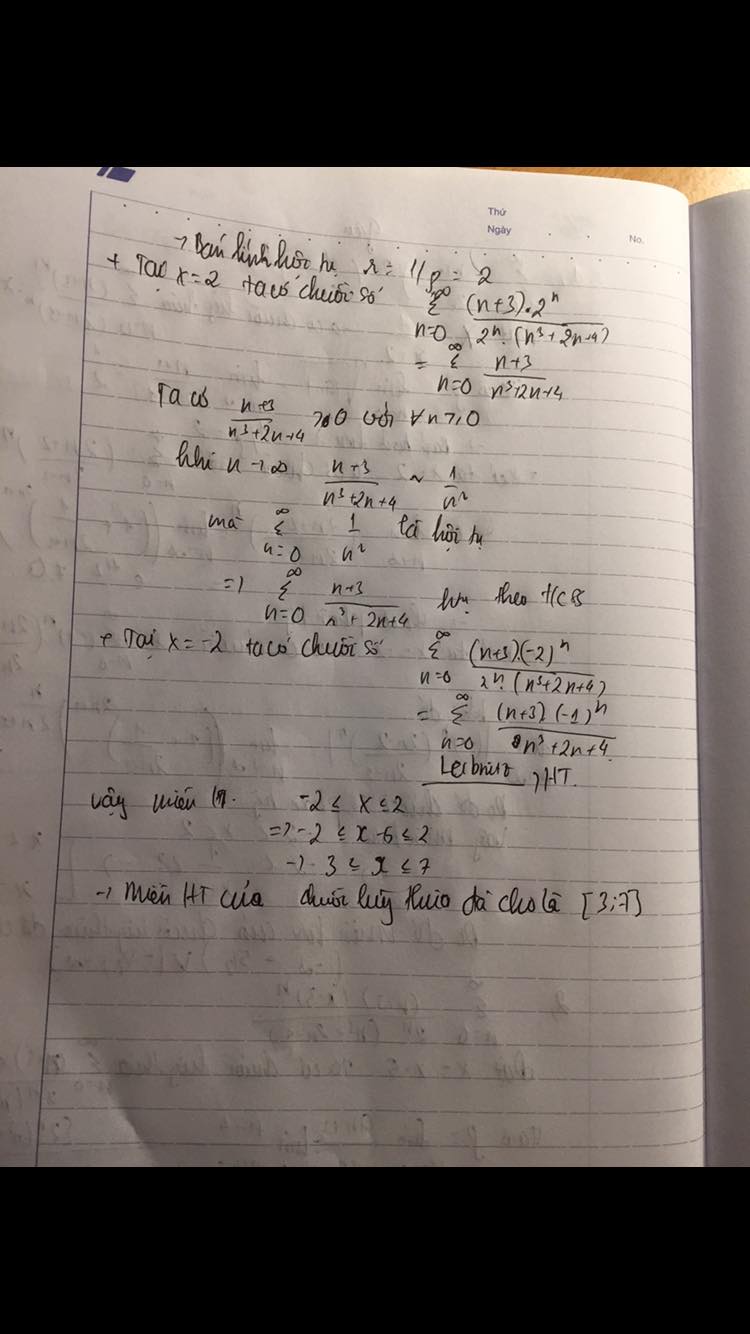 Thứ
Ngày
No.
→ Bán kính hội tụ r = 1/ρ = 2
+ Tại x=2 ta có chuỗi số ∞ Σ n=0 (n+3).2^n / 2^n.(n^3+2n+4)
= ∞ Σ n=0 n+3 / n^3+2n+4
Ta có n+3 / n^3+2n+4 >0 với ∀n≥0
khi n→∞ n+3 / n^3+2n+4 ~ 1/n^2
mà ∞ Σ n=0 1/n^2 là hội tụ
=> ∞ Σ n=0 n+3 / n^3+2n+4 theo TCSS
+ Tại x=-2 ta có chuỗi số ∞ Σ n=0 (n+3).(-2)^n / 2^n.(n^3+2n+4)
= ∞ Σ n=0 (n+3)(-1)^n / n^3+2n+4
Leibnitz → HT.
Vậy miền -2 ≤ x ≤ 2
=> -2 ≤ x-5 ≤ 2
→ 3 ≤ x ≤ 7
→ Miền HT của chuỗi lũy thừa đã cho là [3;7]